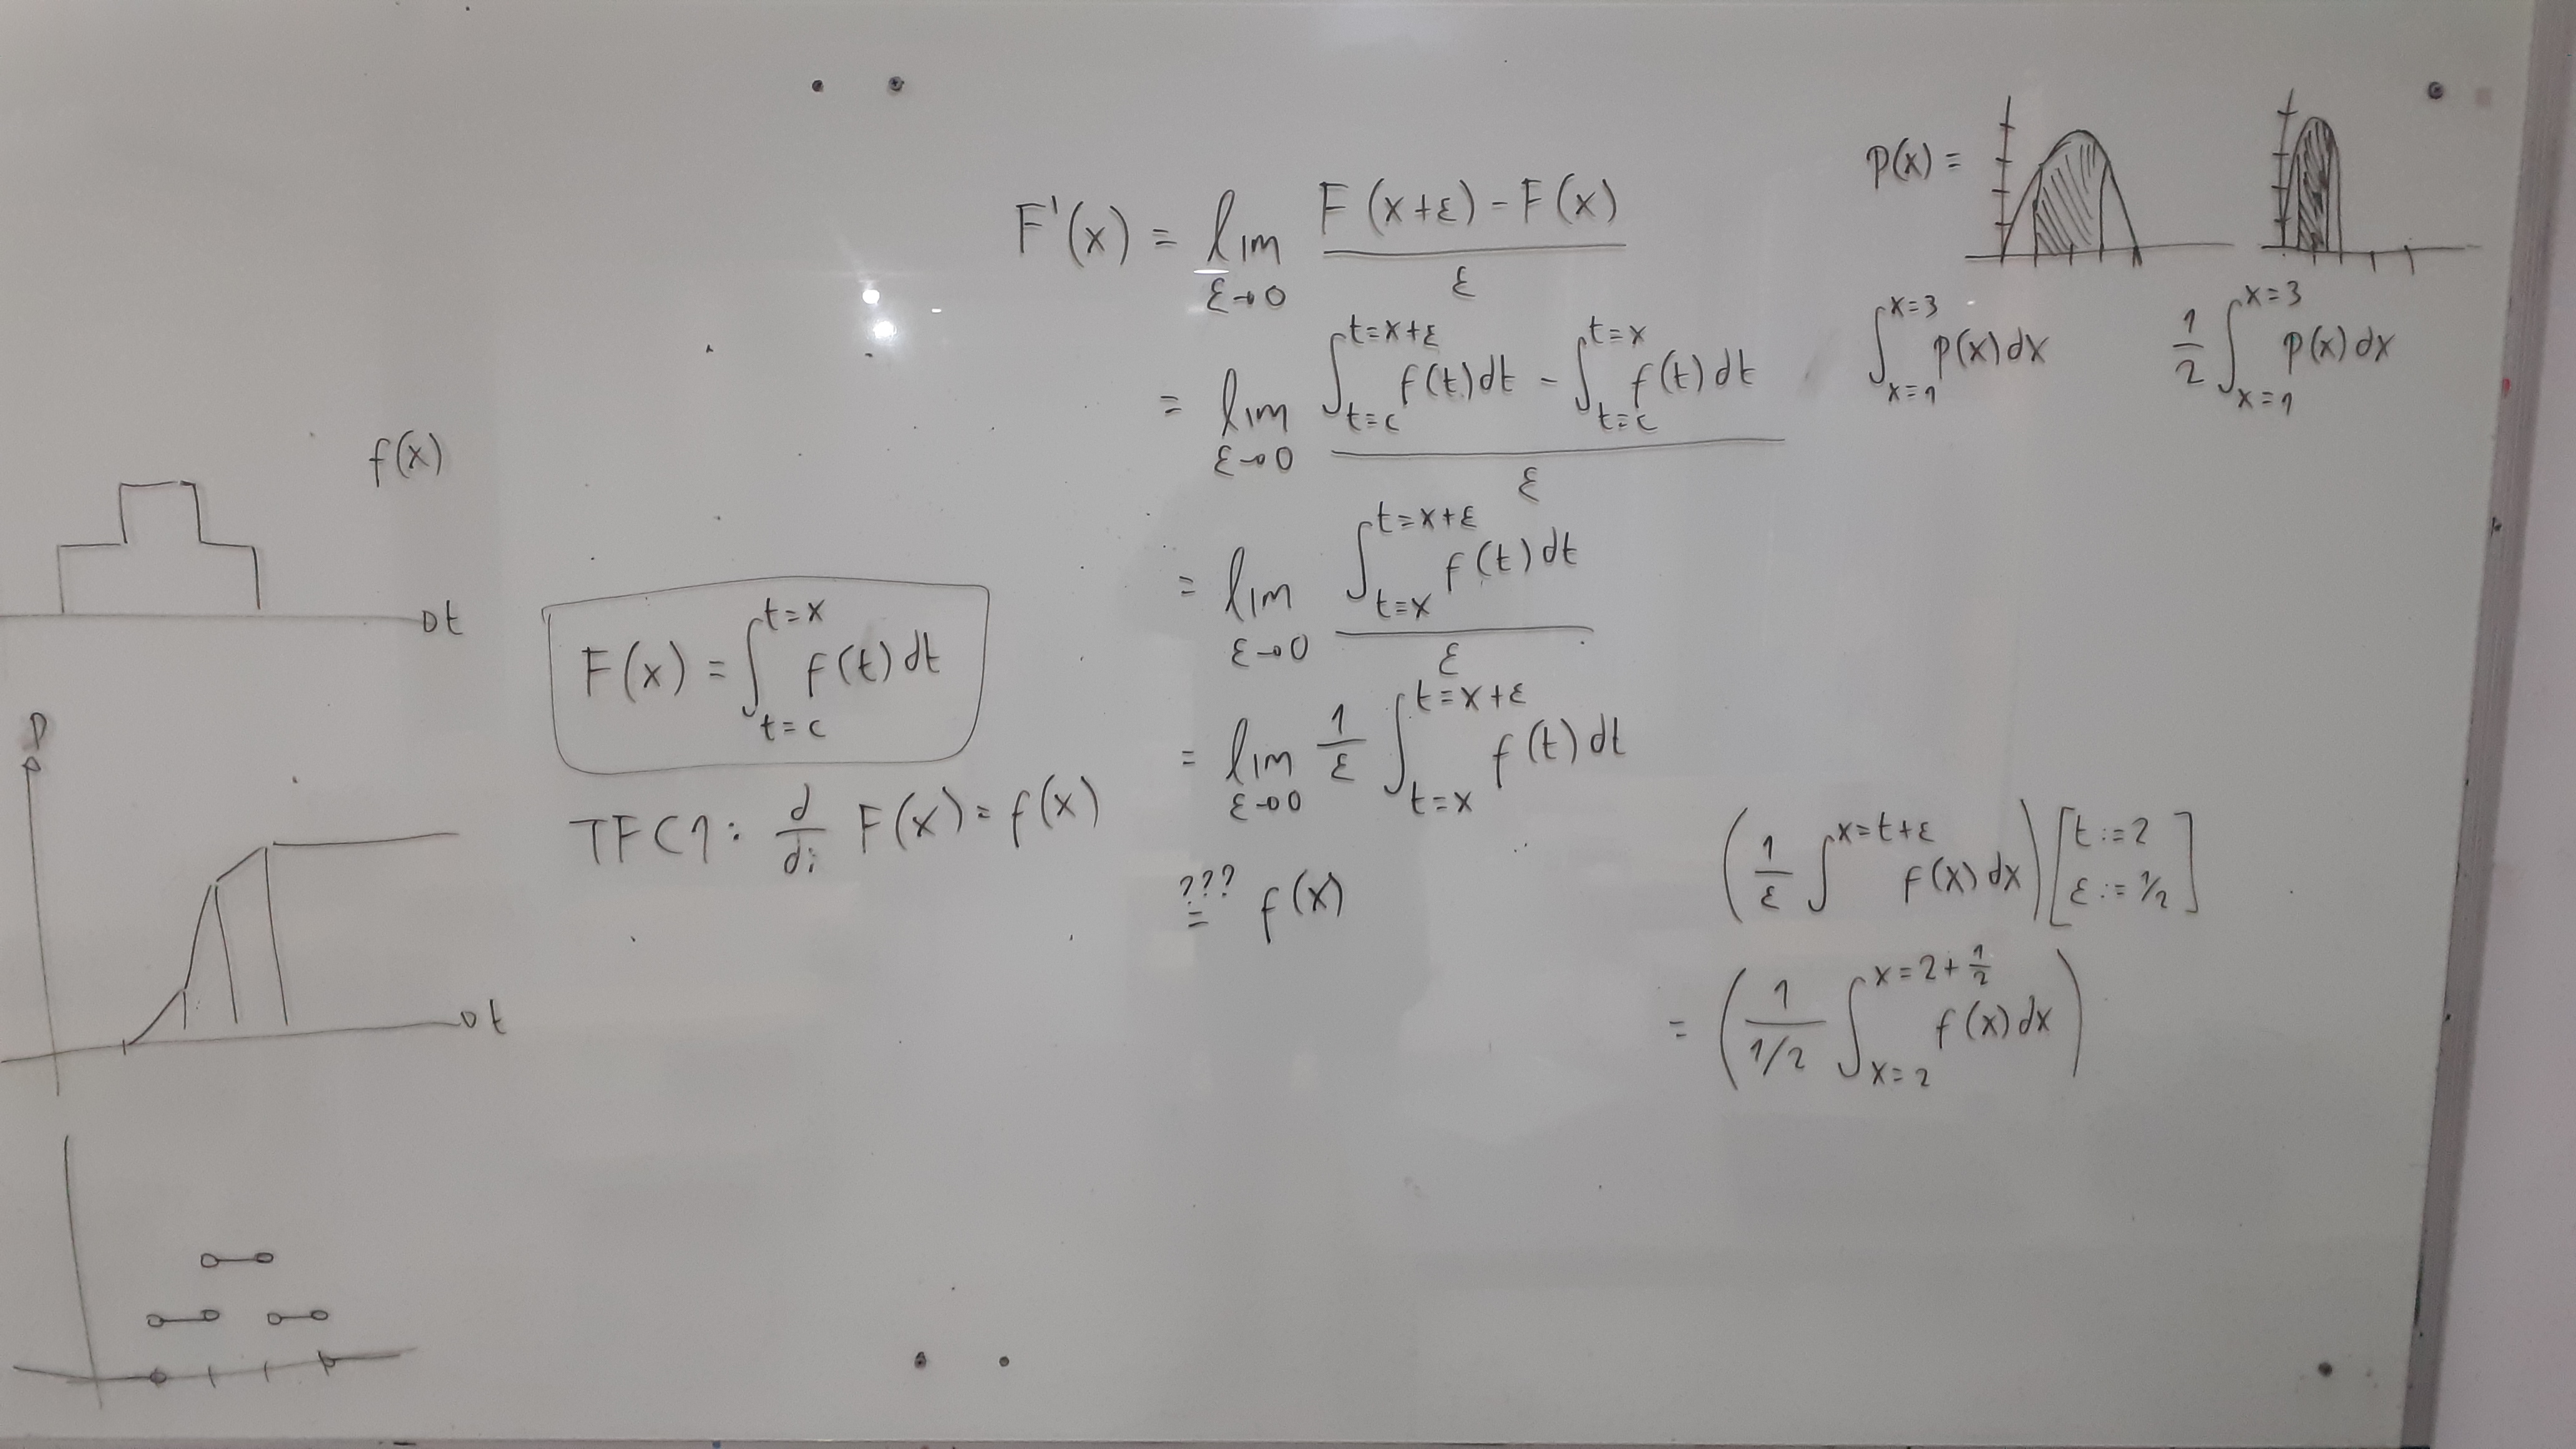 f(x)
t
F(x) = ∫_{t=c}^{t=x} f(t) dt
TFC1: d/di F(x) = f(x)
t
F'(x) = lim_{ε→0} (F(x+ε) - F(x)) / ε
= lim_{ε→0} (∫_{t=c}^{t=x+ε} f(t) dt - ∫_{t=c}^{t=x} f(t) dt) / ε
= lim_{ε→0} (∫_{t=x}^{t=x+ε} f(t) dt) / ε
= lim_{ε→0} 1/ε ∫_{t=x}^{t=x+ε} f(t) dt
??? = f(x)
p(x) =
∫_{x=1}^{x=3} p(x) dx    1/2 ∫_{x=1}^{x=3} p(x) dx
(1/ε ∫^{x=t+ε} f(x) dx) [t := 2  ε := 1/2]
= (1/(1/2) ∫_{x=2}^{x=2+1/2} f(x) dx)